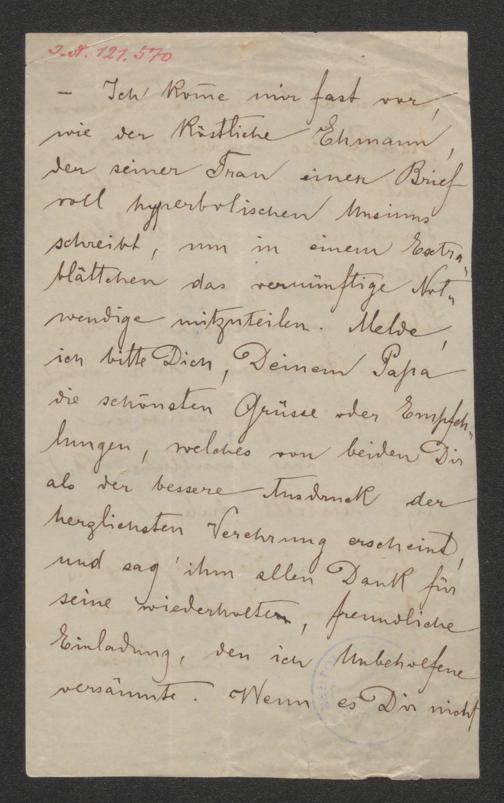 I.N. 121.570
– Ich kom̄e mir fast vor,
wie der köstliche Ehmann,
der seiner Frau einen Brief
voll hyperbolischen Unsinns
schreibt, um in einem Extra-
blättchen das vernünftige Not-
wendige mitzuteilen. Melde,
ich bitte Dich, Deinem Papa
die schönsten Grüsse oder Empfeh-
lungen, welches von beiden Dir
als der bessere Ausdruck der
herzlichsten Verehrung erscheint,
und sag' ihm allen Dank für
seine wiederholten, freundliche
Einladung, den ich Unbeholfene
versäumte. Wenn es Dir nicht